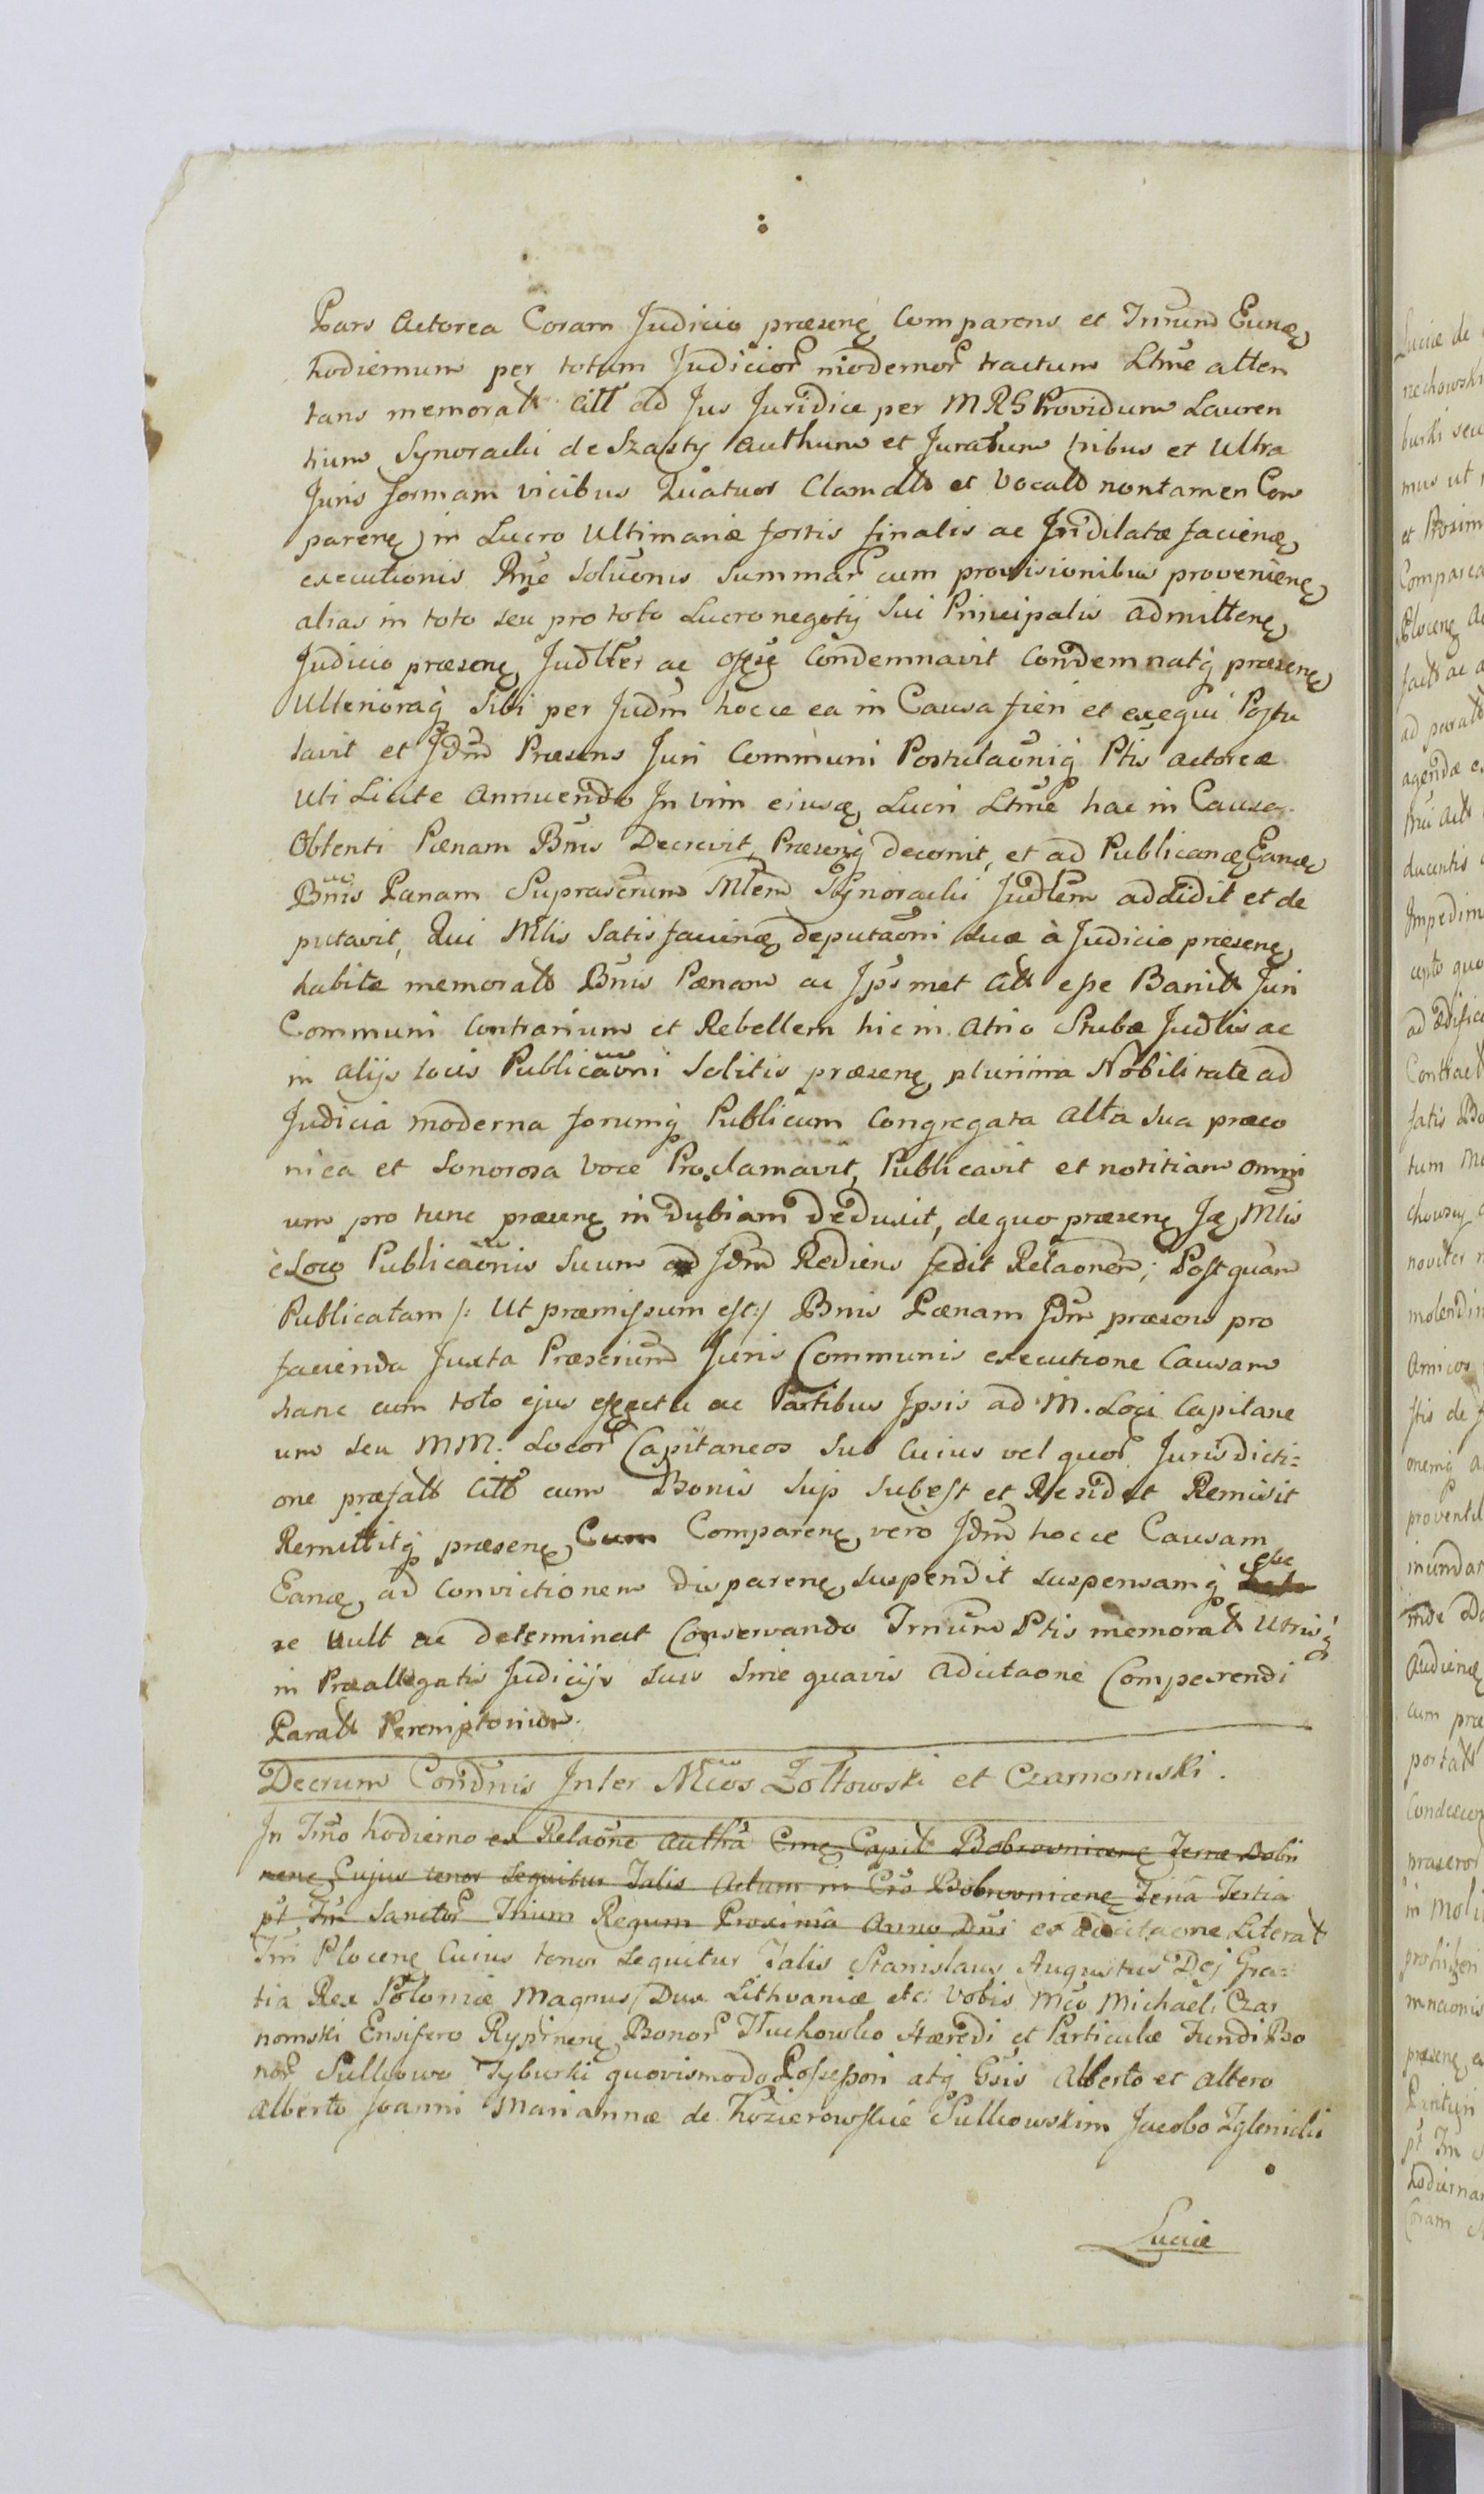 Pars Actorea Coram Judicio præsenę Comparens et Trnum Eundę
hodiernum per totum Judicior modernor tractum Ltme atten
tans memorat Citt ad Jus Juridice per MRS Providum Lauren
tium Synoracki de Szasty Authum et Juratum tribus et Ultra
Juris formam vicibus Quatuor Clamatt et Vocatt non tamen Com
parenę in Lucro Ultimariæ sortis finalis ac Indilatæ faciendę
executionis Rnæ Soluonis Summar cum provisionibus provenienę
alias in toto seu pro toto Lucro negotij Sui Principalis admittenę
Judicio præsenę Judltter ac Condemnavit Condemnatq præsenę
Ulterioraq Sibi per Judm hocce ea in Causa fieri et exequi Postu
lavit et Jdm Præsens Juri Communi Postulaoniq Ptis actoreæ
Uti Licite Annuendo In vim eiusdę Lucri Ltme hac in Causa
Obtenti Pœnam Bnis Decrevit, Præsenq decernit, et ad Publicandę Eandę
Bnis Pœnam Suprascrum Mlem Synoracki Judlem addidit et de
putavit, Qui Mlis Satisfaciendę deputaoni Suæ à Judicio præsenę
habitæ memoratt Bnis Pœnam ac Jpsmet Citt esse Banitt Juri
Communi Contrarium et Rebellem hic in Atrio Stubæ Judlis ac
in alijs locis Publicaoni Solitis præsenę plurima Nobilitate ad
Judicia moderna forumq Publicum Congregata Alta Sua præco
nica et Sonorosa Voce Proclamavit, Publicavit et notitiam omni
um pro tunc præsenę in dubiam deduxit, de quo præsenę Jdę Mlis
è Loco Publicaonis Suum ad Jdm Rediens fecit Relaonem; Postquam
Publicatam /: Ut præmissum est :/ Bnis Pœnam Jdm præsens pro
facienda Juxta Præscrium Juris Communis executione Causam
hanc cum toto ejus effectu ac Partibus Ipsis ad M. Loci Capitane
um seu MM. Locor Capitaneos Sub Cuius vel quor Jurisdicti=
one præfatt Citt cum Bonis Suis Subest et Residet Remisit
Remittitq præsenę Cum Comparenę vero Jdm hocce Causam
Eandę ad Convictionem disparenę suspendit suspensamq esse
se Vult ac determinat Conservando Trnum Ptis memoratt Utrisq
in Præallegatis Judicijs Suis Sine quavis Adcitaone Comparendi
Paratt Peremptorium.
Decrum Condnis Inter Mcos Zółtowski et Czarnomski.
In Trno hodierno ex Relaone Autha Cmę Capit Bobrovnicenę Terræ Dobri
nenę Cujus tenor Sequitur Talis Actum in Cro Bobrovnicenę Feria Tertia
pt Fm Sanctor Trium Regum Proxima Anno Dni ex Adcitaone Literat
Tri Plocenę Cuius tenor Sequitur Talis Stanislaus Augustus Dej Gra=
tia Rex Poloniæ Magnus Dux Lithvaniæ etc: Vobis Mco Michaeli Czar
nomski Ensifero Rypinenę Bonor Tłuchowko Hæredi et Particulæ Fundi Bo
nor Sulkowo Tyburki quovismodo Possessori atq Gsis Alberto et altero
Alberto Joanni Mariannæ de Kozierowskie Sulkowskim Jacobo Zglenicki
Luciæ